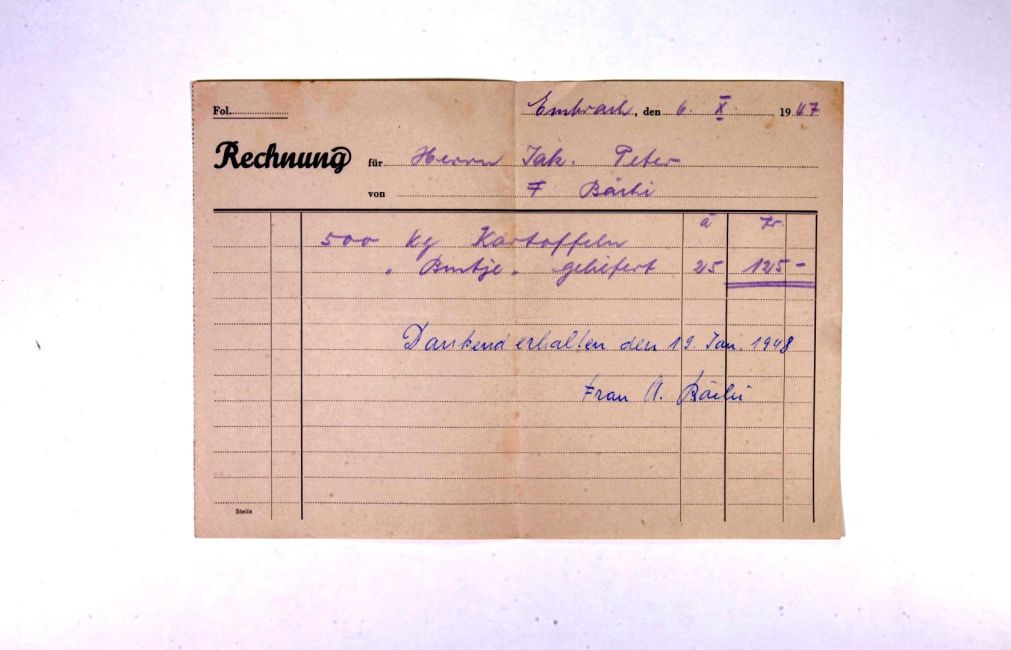 Fol.
Embrach, den 6. X. 1947
Rechnung für Herrn Jak. Peter
von F Bächi
à Fr.
500 kg Kartoffeln
" Bintje " geliefert 25 125 –
Dankend erhalten den 19 Jan. 1948
Frau A. Bächi
Stella